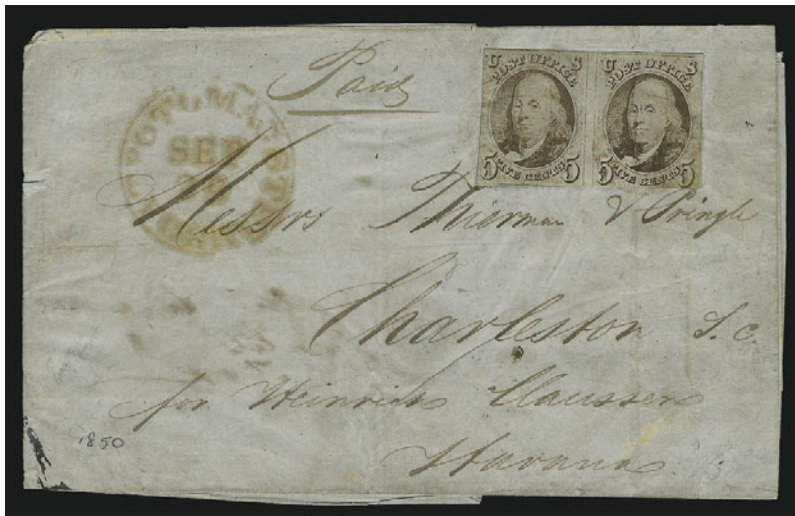 Paid
U S
POST OFFICE
5 FIVE CENTS 5
U S
POST OFFICE
5 FIVE CENTS 5
POTOMAC
SEP
Messrs Thierman & Pringle
Charleston S. C.
for Heinrich Claussen
Havana
1850